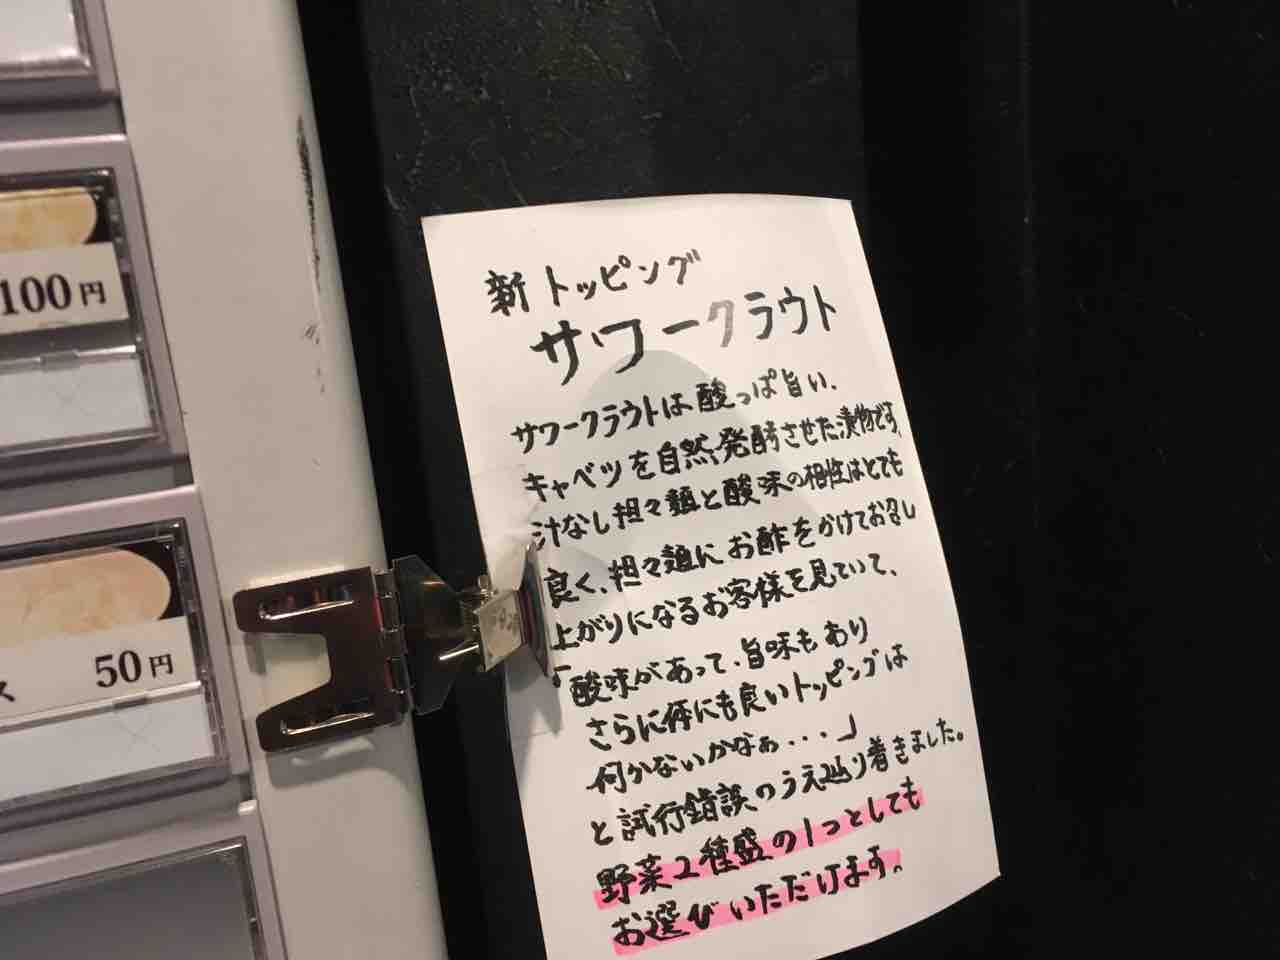 100円
ス 50円
新トッピング
サワークラウト
サワークラウトは酸っぱ旨い、
キャベツを自然発酵させた漬物です。
汁なし担々麺と酸味の相性はとても
良く、担々麺にお酢をかけてお召し
上がりになるお客様を見ていて、
「酸味があって、旨味もあり
さらに体にも良いトッピングは
何かないかなぁ・・・」
と試行錯誤のうえ辿り着きました。
野菜2種盛の1つとしても
お選びいただけます。